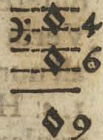 4
6
9